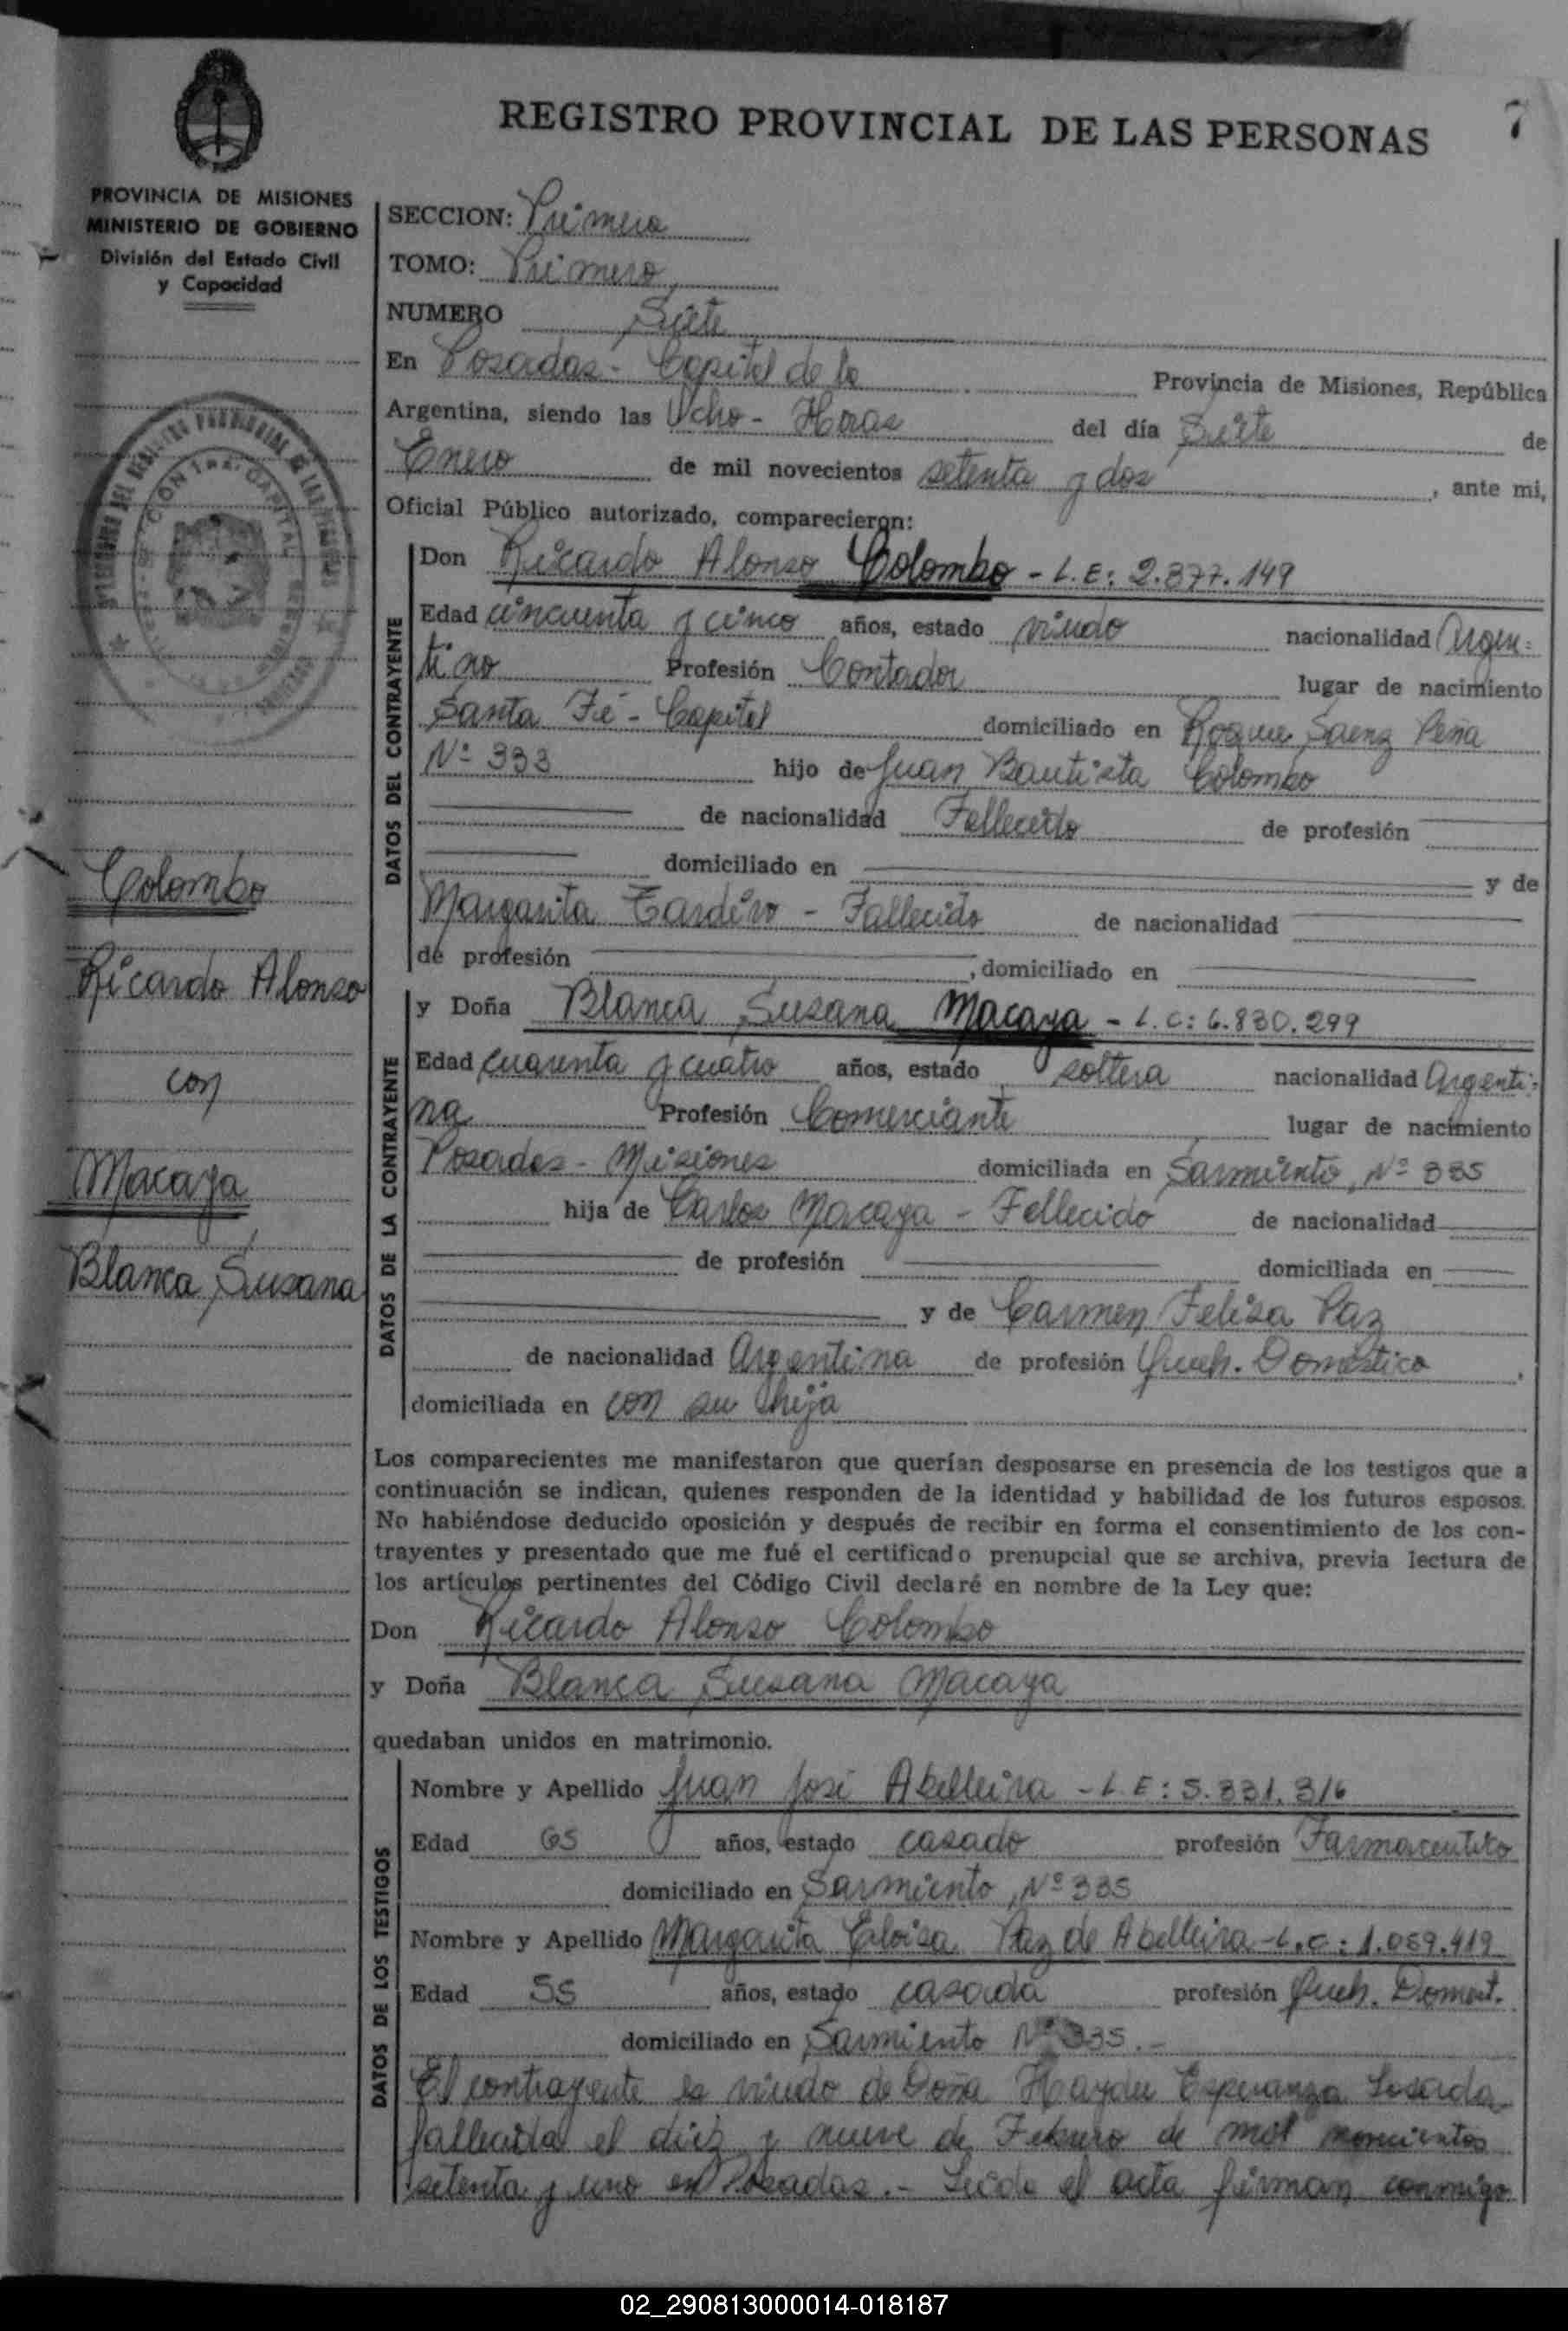 REGISTRO PROVINCIAL DE LAS PERSONAS
7
PROVINCIA DE MISIONES
MINISTERIO DE GOBIERNO
División del Estado Civil
y Capacidad
SECCION: Primera
TOMO: Primero
NUMERO Siete
En Posadas - Capital de la Provincia de Misiones, República
Argentina, siendo las Ocho - Horas del día Siete de
Enero de mil novecientos setenta y dos, ante mi,
Oficial Público autorizado, comparecieron:
DATOS DEL CONTRAYENTE
Don Ricardo Alonso Colombo - L.E: 2.877.149
Edad cincuenta y cinco años, estado viudo nacionalidad Argen-
tino Profesión Contador lugar de nacimiento
Santa Fé - Capital domiciliado en Roque Saenz Peña
Nº 333 hijo de Juan Bautista Colombo
de nacionalidad Fallecido de profesión
domiciliado en y de
Margarita Tardivo - Fallecido de nacionalidad
de profesión , domiciliado en
DATOS DE LA CONTRAYENTE
y Doña Blanca Susana Macaya - L.C: 6.830.299
Edad cuarenta y cuatro años, estado soltera nacionalidad Argenti-
na Profesión Comerciante lugar de nacimiento
Posadas - Misiones domiciliada en Sarmiento, Nº 335
hija de Carlos Macaya - Fallecido de nacionalidad
de profesión domiciliada en
y de Carmen Felisa Paz
de nacionalidad Argentina de profesión Queh. Domestico,
domiciliada en con su hija
Colombo
Ricardo Alonso
con
Macaya
Blanca Susana
Los comparecientes me manifestaron que querían desposarse en presencia de los testigos que a
continuación se indican, quienes responden de la identidad y habilidad de los futuros esposos.
No habiéndose deducido oposición y después de recibir en forma el consentimiento de los con-
trayentes y presentado que me fué el certificado prenupcial que se archiva, previa lectura de
los artículos pertinentes del Código Civil declaré en nombre de la Ley que:
Don Ricardo Alonso Colombo
y Doña Blanca Susana Macaya
quedaban unidos en matrimonio.
DATOS DE LOS TESTIGOS
Nombre y Apellido Juan José Abelleira - L.E: 5.331.316
Edad 65 años, estado casado profesión Farmaceutico
domiciliado en Sarmiento, Nº 335
Nombre y Apellido Margarita Eloisa Paz de Abelleira - L.C: 1.059.419
Edad 55 años, estado casada profesión Queh. Domest.
domiciliado en Sarmiento Nº 335.-
El contrayente es viudo de Doña Haydee Esperanza Losada
fallecida el diez y nueve de Febrero de mil novecientos
setenta y uno en Posadas.- Leída el acta firman conmigo
02_290813000014-018187